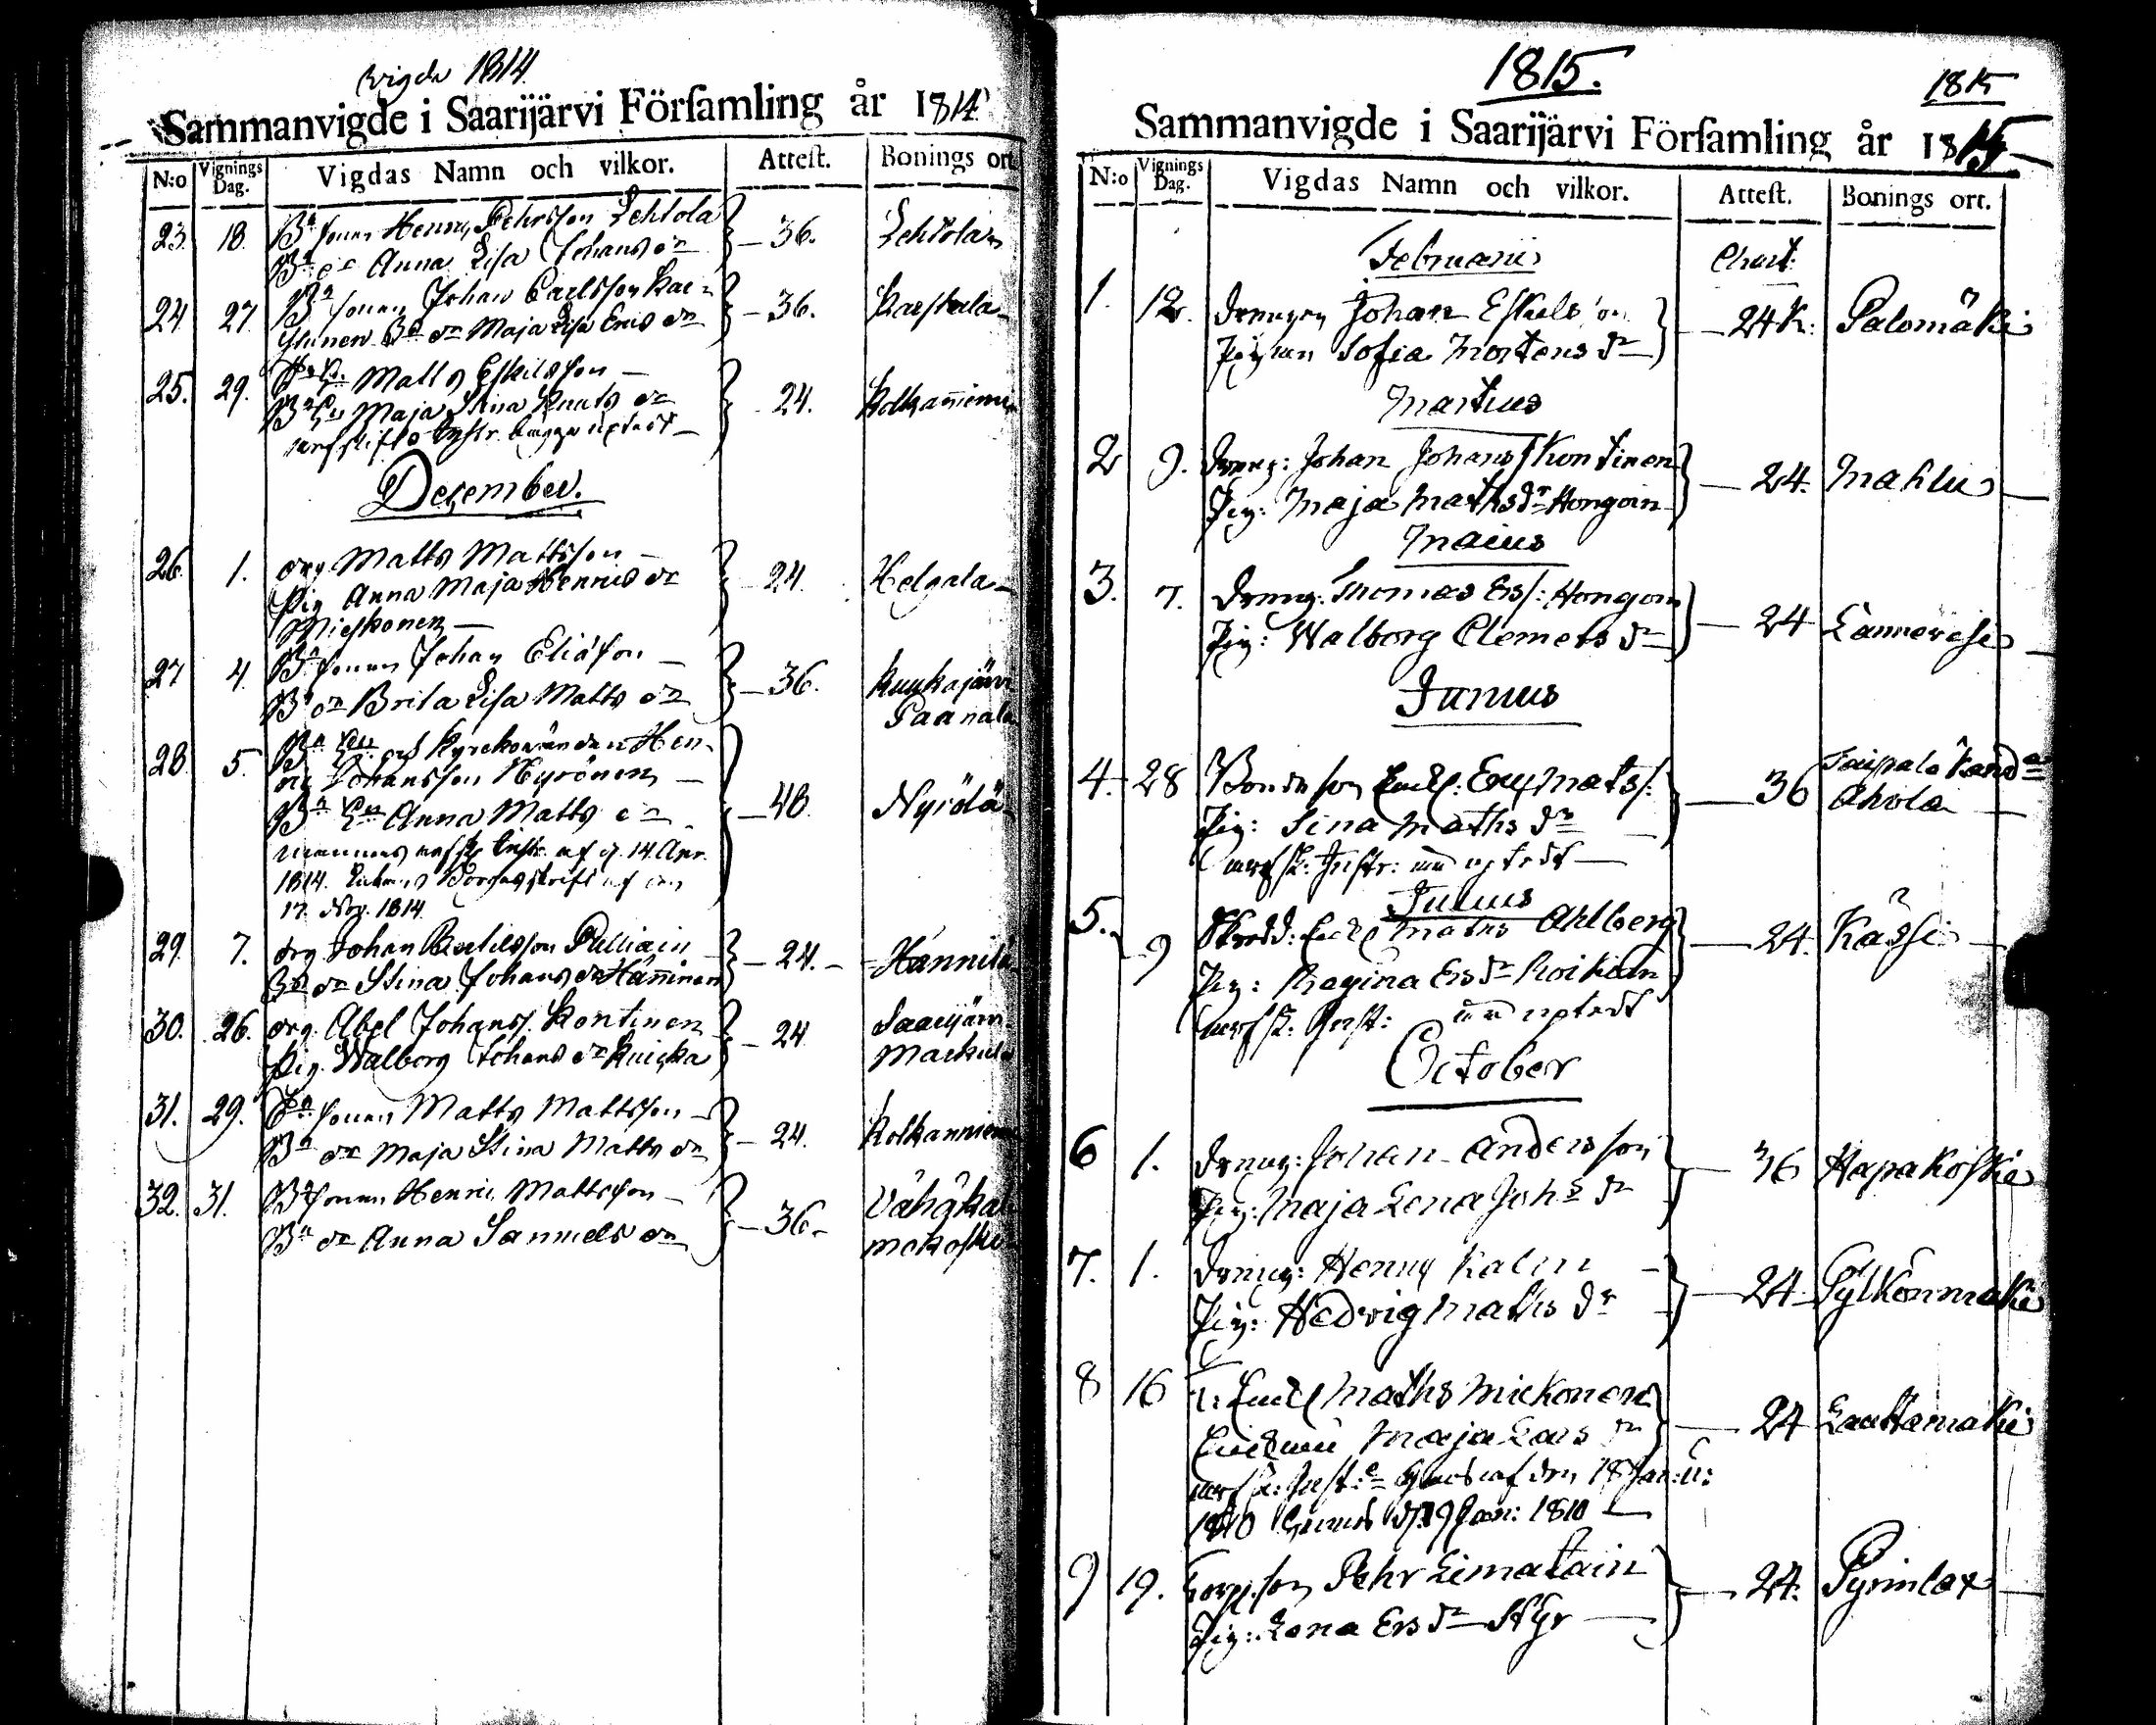 Vigda 1814
Sammanvigde i Saarijärvi Församling år 1814
N:o Vignings Dag. Vigdas Namn och vilkor. Attest. Bonings ort
23. 18. Bd sonen Henric Pehrsson Lehtola
Bd dr Anna Lisa Johans dr 36. Lehtola
24 27. Bd sonen Johan Carlsson Kar-
stinen Bd dr Maja Lisa Erics dr 36. Karstula
25. 29. Matts Eskilsson
Maja Stina Knuts dr 24. Kolkanniemi
December.
26 1. drg Matts Mattsson
Pig Anna Maja Henrics dr 24. Helgala
Mieskonen
27 4. Bd sonen Johan Eliasson
Bd dr Brita Lisa Matts dr 36. Kuukajärvi
Paanala
28 5. Kyrkovärden Hen-
ric Johansson Nyrönen
Anna Matts dr 48. Nyrölä
14 Apr.
1814. af den
17. Nov. 1814.
29. 7. drg Johan Bertilsson Pulliain
Bd dr Stina Johans dr Hänninen 24. Hännilä
30. 26. drg. Abel Johanss. Kontinen 24 Saarijärvi
Pig. Walborg Johans dr Kuicka Markula
31. 29. sonen Matts Mattsson
Bd dr Maja Stina Matts dr 24. Kolkanniemi
32. 31. Bd sonen Henric Mattsson
Bd dr Anna Samuels dr 36. Vähä Kal-
mokoski
1815.
1815
Sammanvigde i Saarijärvi Församling år 1815
N:o Vignings Dag. Vigdas Namn och vilkor. Attest. Bonings ort.
Februarii Chart:
1. 12. Drengen Johan Eskelson
Pigan Sofia Mortens dr 24 K: Palomäki
Martius
2 9. Dreng: Johan Johanss Kontinen
Pig: Maja Maths dr Hongoin 24. Mahlu
Maius
3. 7. Dreng: Thomas Ers: Hongoin
Pig: Walborg Clemets dr 24 Lannevesi
Junius
4. 28 Bonde son Enkl: Eric Matss: Taipale
Pig: Lina Maths dr 36 Ahola
Instr: uptedt
Julius
5. 9 Skredd: Enkl Maths Ahlberg 24. Kässi
Pig: Regina Ers dr Roikoin
Inst: uptedt
October
6 1. Dreng: Johan Andersson
Pig: Maja Lena Johs dr 36 Hapakoski
7. 1. Dreng: Henric Kalm
Pig: Hedvig Maths dr 24 Pylkönmäki
8 16 Enkl Maths Mickonen
Maja Lars dr 24 Lauttamäki
af den 18 Janu:
1810 d 19 Jan: 1810
9 19. Torp. son Pehr Liimatain
Pig: Lena Ers dr Nyr 24. Pyrinlax